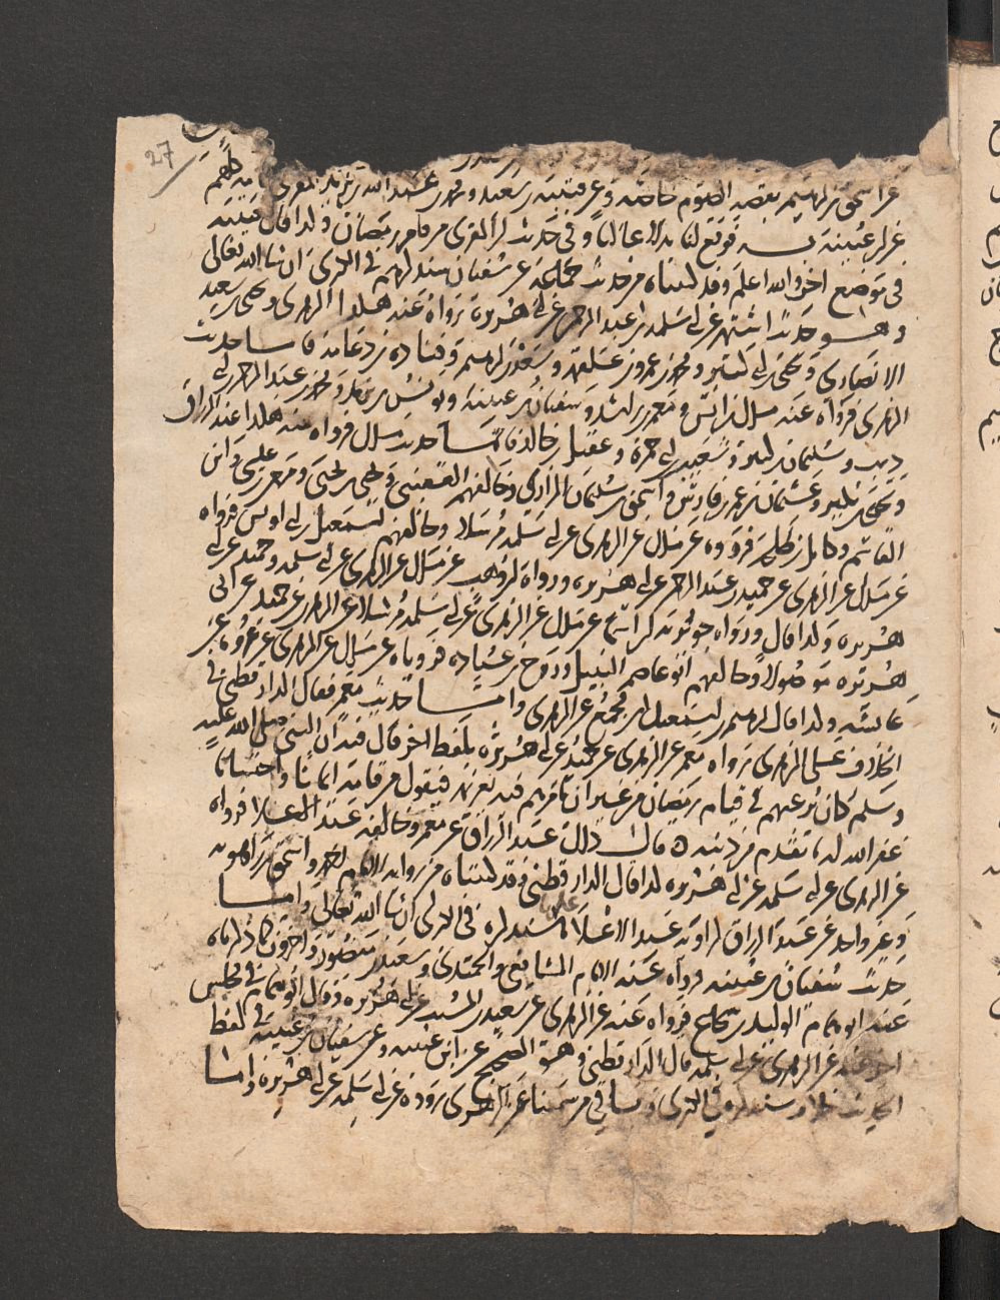 27
عن اسحق بن ابرهيم بقصه الصوم خاصه وعن قتيبه بن سعيد ومحمد بن عبد الله بن يزيد المقري كلهم
عن ابن عيينه فوقع لنا بدلا عاليا وفي حديث ابن المقري من قام رمضان وكذا قال قتيبه
في موضع اخر والله اعلم وقد كتبناه من حديث جماعه عن سفين سنذكرهم في الذي ان شا الله تعالى
وهو حديث اشتهر عن ابي سلمه بن عبد الرحمن عن ابي هريره رواه عنه هكذا الزهري ويحيى بن سعيد
الانصاري ويحيى بن ابي كثير ومحمد بن عمرو بن علقمه وسعد بن ابرهيم وقتاده بن دعامه فاما حديث
الزهري فرواه عنه مالك بن انس ومعمر بن راشد وسفيان بن عيينه ويونس بن يزيد ومحمد بن عبد الرحمن بن ابي
ذيب وسليمن بن كثير وشعيب بن ابي حمزه وعقيل بن خالد فاما حديث مالك فرواه عنه هكذا عبد الرزاق
ويحيى بن بكير وعثمان بن عمر بن فارس واسحق بن سليمان الرازي وخالفهم القعنبي ويحيى بن يحيى ومعن بن عيسى وابن
القاسم وكامل بن طلحه فرووه عن مالك عن الزهري عن ابي سلمه مرسلا وخالفهم اسمعيل بن ابي اويس فرواه
عن مالك عن الزهري عن حميد بن عبد الرحمن عن ابي هريره ورواه ابن وهب عن مالك عن الزهري عن ابي سلمه وحميد عن ابي
هريره وكذا قال ورواه جويريه بن اسما عن مالك عن الزهري عن ابي سلمه مرسلا وعن الزهري عن حميد عن ابي
هريره موصولا وخالفهم ابو عاصم النبيل وروح بن عباده فروياه عن مالك عن الزهري عن عروه عن
عايشه وكذا قال ابرهيم بن اسمعيل بن مجمع عن الزهري واما حديث معمر فقال الدارقطني في
اختلاف على الزهري رواه معمر عن الزهري عن حميد عن ابي هريره بلفظ اخر قال فيه ان النبي صلى الله عليه
وسلم كان يرغبهم في قيام رمضان من غير ان يامرهم فيه بعزيمه فيقول من قامه ايمانا واحتسابا
غفر الله له ما تقدم من ذنبه ه قال ذلك عبد الرزاق عن معمر وخالفه عبد الاعلا فرواه
عن الزهري عن ابي سلمه عن ابي هريره كذا قال الدارقطني وقد كتبناه من روايه الامام احمد واسحق بن راهويه
وغير واحد عن عبد الرزاق كروايه عبد الاعلا سنذكره في الذي ان شا الله تعالى واما
حديث سفيان بن عيينه فرواه عنه الامام الشافعي والحميدي وسعيد بن منصور واخرون كما ذكرناه
عنه ابو همام الوليد بن شجاع فرواه عنه عن الزهري عن سعيد بن المسيب عن ابي هريره وقول ابو همام في مجلس
اخر عنه عن الزهري عن ابي سلمه قال الدارقطني وهو الصحيح عن ابن عيينه وعن سفيان بن عيينه في لفظ
الحديث سنذكره في الذي وسائر من سمينا عن الزهري رووه عن ابي سلمه عن ابي هريره واما